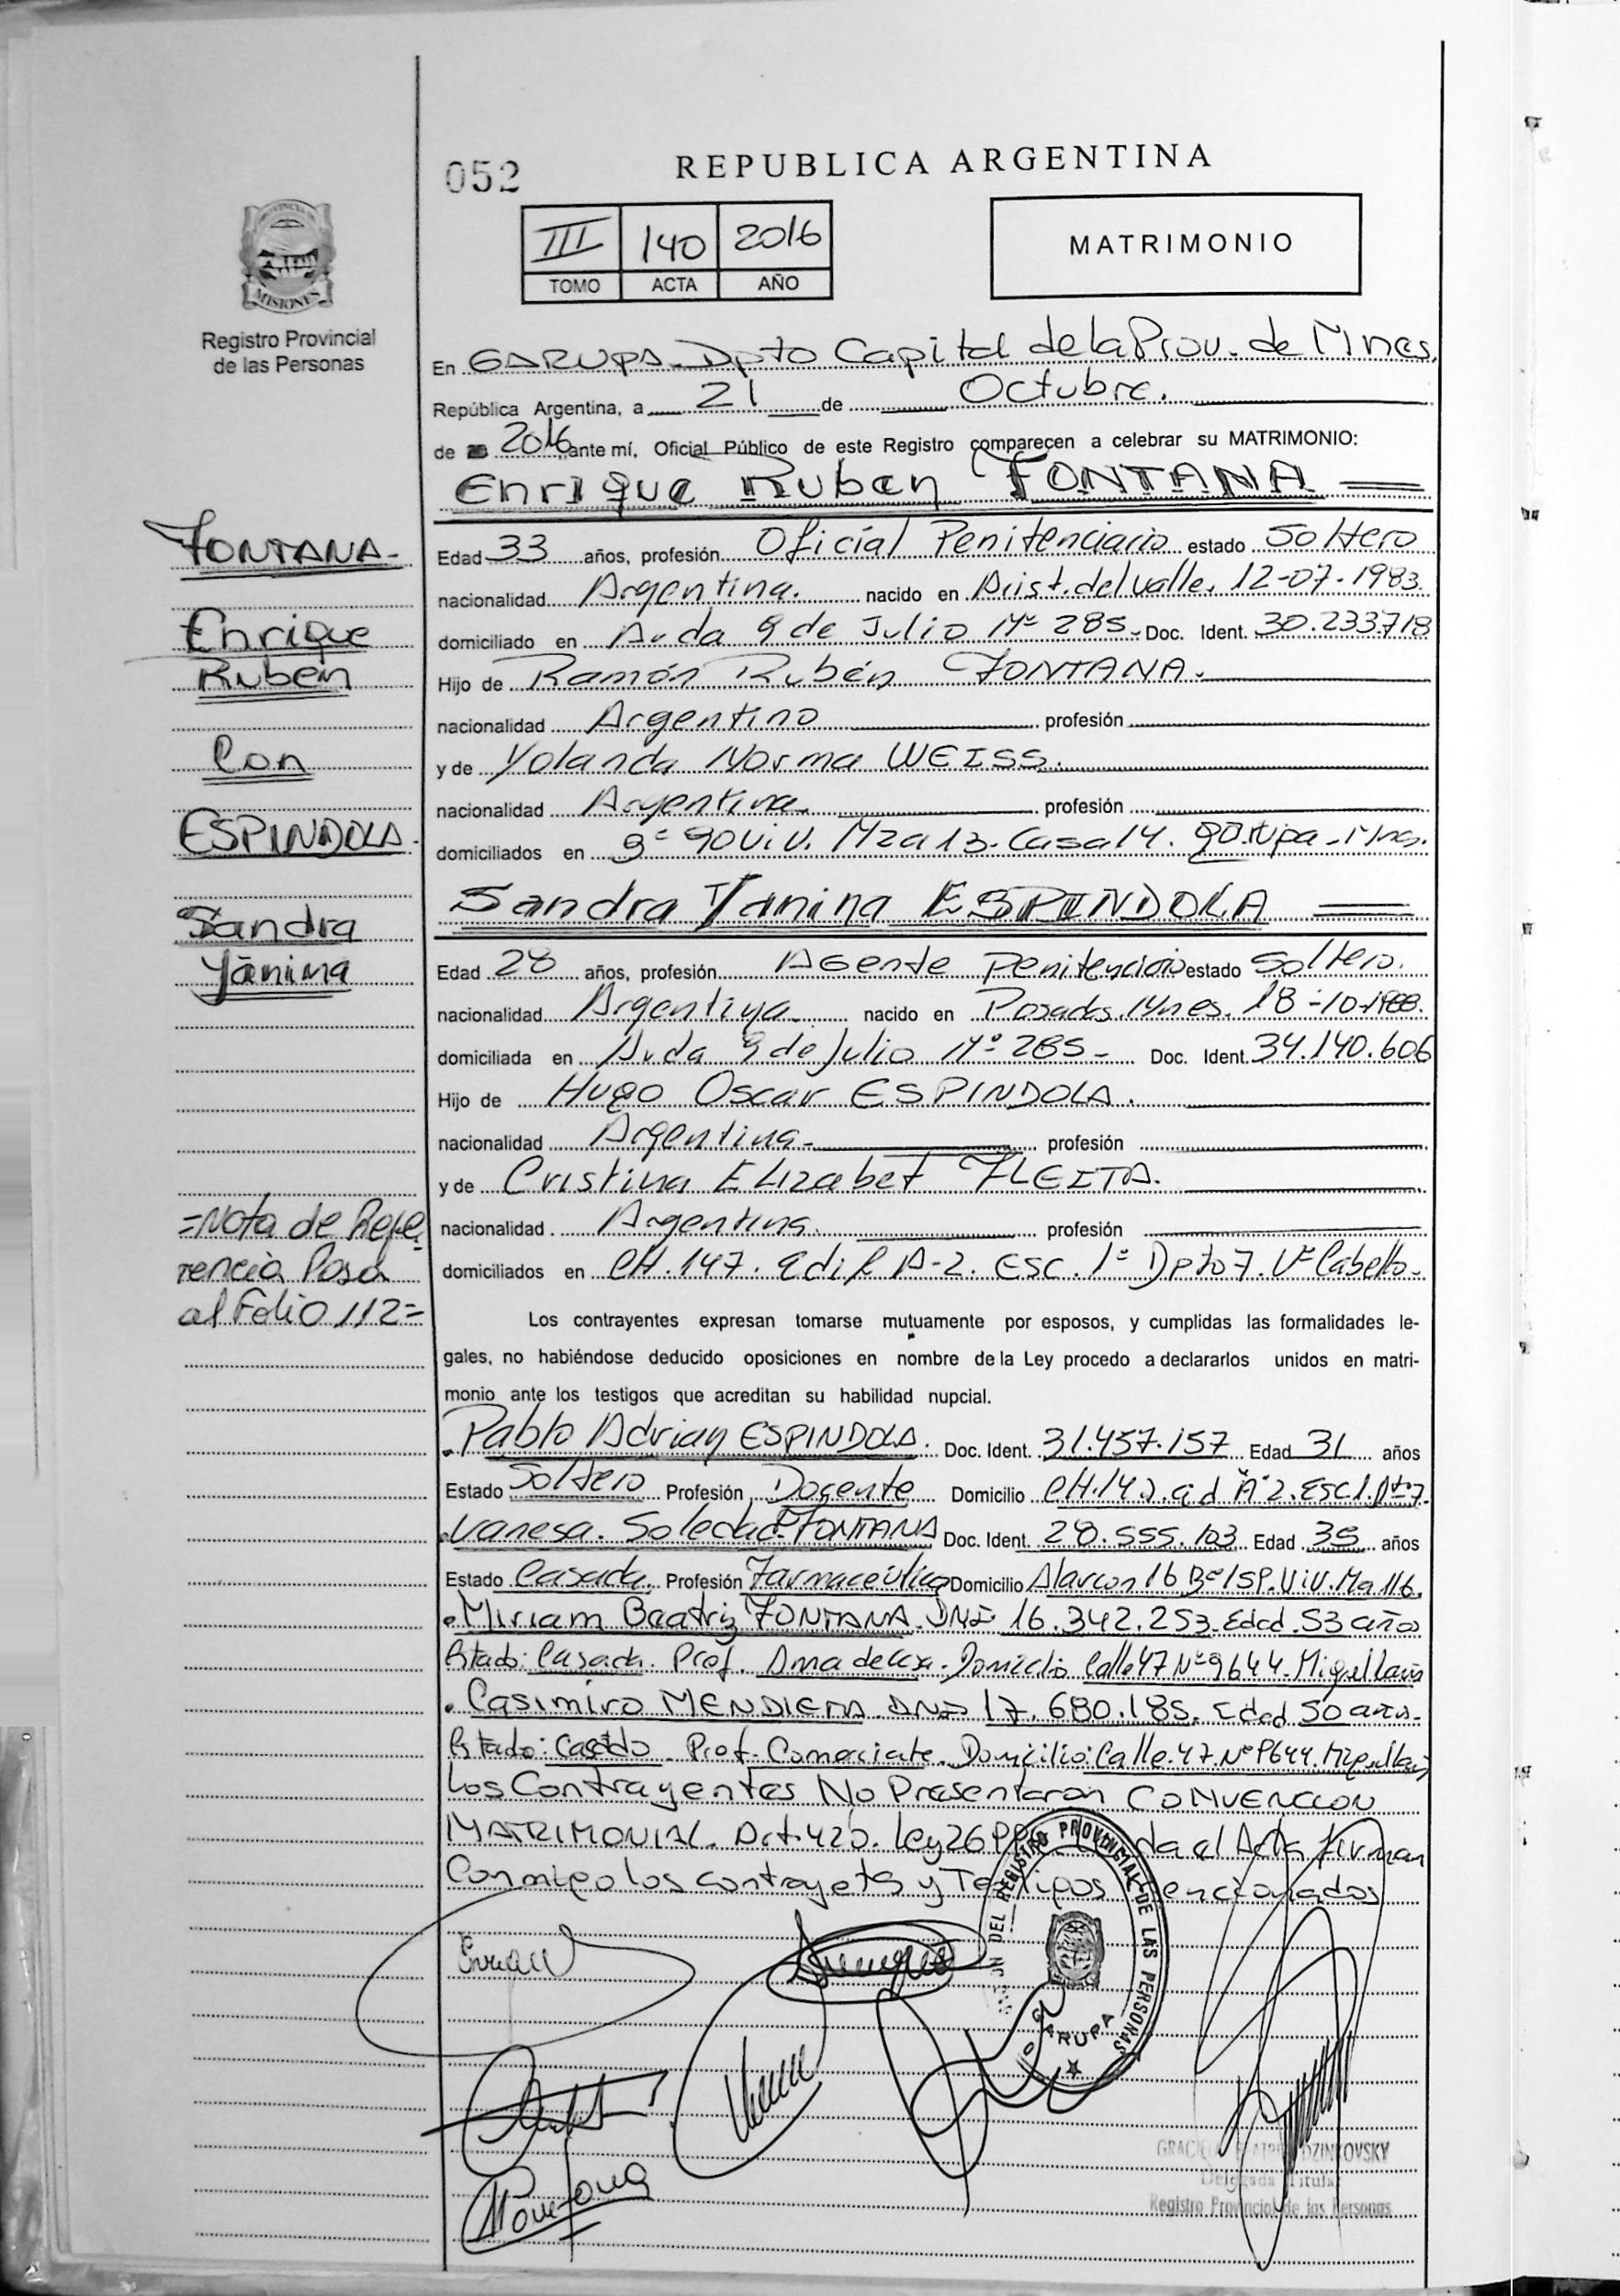 052
REPUBLICA ARGENTINA
III 140 2016
TOMO ACTA AÑO
MATRIMONIO
PROVINCIA DE
MISIONES
Registro Provincial
de las Personas
En GARUPA Dpto Capital de la Prov. de Mnes.
República Argentina, a 21 de Octubre.
de 2016 ante mí, Oficial Público de este Registro comparecen a celebrar su MATRIMONIO:
Enrique Ruben FONTANA
Edad 33 años, profesión Oficial Penitenciario estado Soltero
nacionalidad Argentina. nacido en Arist. del Valle. 12-07-1983.
domiciliado en Avda 9 de Julio Nº 285. Doc. Ident. 30.233.718
Hijo de Ramón Rubén FONTANA.
nacionalidad Argentino profesión
y de Yolanda Norma WEISS.
nacionalidad Argentina profesión
domiciliados en 90 Viv. Mza 13. Casa 14. Garupa - Mnes.
Sandra Yanina ESPINDOLA
Edad 28 años, profesión Agente Penitenciario estado Soltero.
nacionalidad Argentina nacido en Posadas. Mnes. 18-10-1988.
domiciliada en Avda 9 de Julio Nº 285 - Doc. Ident. 34.140.606
Hijo de Hugo Oscar ESPINDOLA.
nacionalidad Argentina profesión
y de Cristina Elizabet FLEITA.
nacionalidad Argentina. profesión
domiciliados en CH. 147. Edif A-2. Esc. 1º Dpto 7. Vª Cabello.
FONTANA-
Enrique
Rubén
Con
ESPINDOLA.
Sandra
Yanina
=Nota de Refe
rencia Pasa
al Folio 112=
Los contrayentes expresan tomarse mutuamente por esposos, y cumplidas las formalidades le-
gales, no habiéndose deducido oposiciones en nombre de la Ley procedo a declararlos unidos en matri-
monio ante los testigos que acreditan su habilidad nupcial.
Pablo Adrian ESPINDOLA. Doc. Ident. 31.457.157 Edad 31 años
Estado Soltero Profesión Docente Domicilio CH. ed "A" 2. Esc 1.
Vanesa. Soledad FONTANA Doc. Ident. 28.555.103 Edad 35 años
Estado Casada Profesión Farmaceútica Domicilio Alarcon 16 Bº Viv. Ma 116.
. Miriam Beatriz FONTANA. DNI 16.342.253. Edad. 53 años
Estado: Casada. Prof. Ama de casa. Domicilio Calle 47 Nº 9644.
. Casimiro MENDIETA DNI 17.680.185. Edad 50 años.
Estado: Casado. Prof. Comerciate. Domicilio: Calle. 47. Nº 9644.
Los Contrayentes No Presentaron CONVENCION
MATRIMONIAL. Art. 420. Ley 26 el Acta Firman
Conmigo los contrayets y Testigos mencionados
DEL REGISTRO PROVINCIAL DE LAS PERSONAS
GARUPA
Delgada Titular
Registro Provincial de las Personas